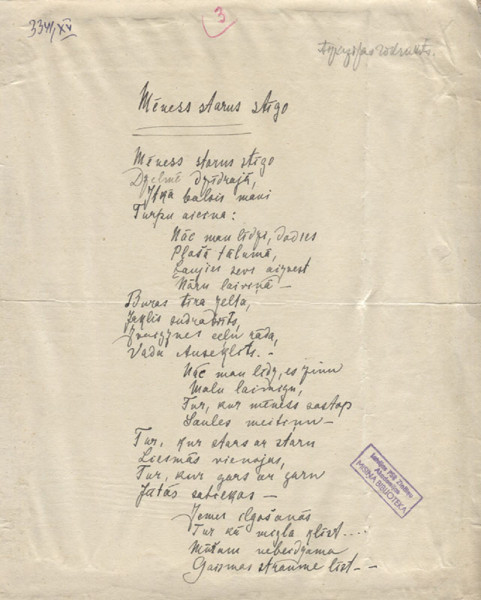 3341, XV
3
Mēness starus stīgo
Mēness starus stīgo
Dzelmē dzidrajā,
Jūsā balsis mani
Turpu aicina:
Nāc man līdzi, dodies
Plašā tālumā,
Ļaujies sevi aiznest
Nāru laiviņā —
Buras tīra zelta,
Zeglis sudrabots,
Zvaigznes ceļu rāda,
Vada Auseklīts. —
Nāc man līdz, es zinu
Malu laimīgu,
Tur, kur mēness sastop
Saules meitiņu —
Tur, kur stars ar staru
Liesmās vienojas,
Tur, kur gars ar garu
satiekas —
Zemes ilgošanās
Tur kā migla klīst....
Mūžam nebeidzama
Gaismas straume līst — —
Latvijas PSR Zinātņu
Akadēmijas
MISIŅA BIBLIOTEKA